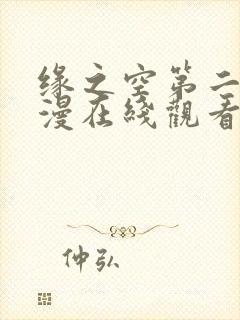 缘之空第二
漫在綫觀看
仲弘